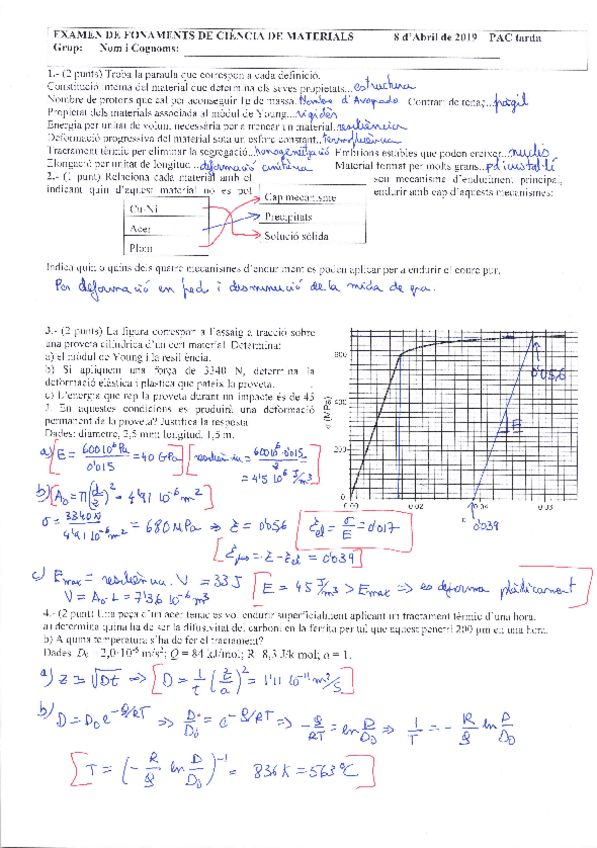 EXAMEN DE FONAMENTS DE CIÈNCIA DE MATERIALS 8 d'Abril de 2019 PAC tarda
Grup: Nom i Cognoms:
1.- (2 punts) Troba la paraula que correspon a cada definició.
Constitució interna del material que determina els seves propietats...estructura
Nombre de protons que cal per aconseguir 1g de massa. Nombre d'Avogado Contrari de tenaç...fràgil
Propietat dels materials associada al mòdul de Young...rigidès
Energia per unitat de volum necessària per a trencar un material.resiliència
Deformació progressiva del material sota un esforç constant..termofluència
Tractament tèrmic per eliminar la segregació...homogeneïtzació Embrions estables que poden créixer..nuclis
Elongació per unitat de longitud...deformació unitària Material format per molts grans..policristal·lí
2.- (1 punt) Relaciona cada material amb el seu mecanisme d'enduriment principal,
indicant quin d'aquest material no es pot endurir amb cap d'aquests mecanismes:
Cu-Ni
Acer
Plom
Cap mecanisme
Precipitats
Solució sòlida
Indica quin o quins dels quatre mecanismes d'enduriment es poden aplicar per a endurir el coure pur.
Per deformació en fred i disminució de la mida de gra.
3.- (2 punts) La figura correspon a l'assaig a tracció sobre
una proveta cilíndrica d'un cert material. Determina:
a) el mòdul de Young i la resiliència.
b) Si apliquem una força de 3340 N, determina la
deformació elàstica i plàstica que pateix la proveta.
c) L'energia que rep la proveta durant un impacte és de 45
J. En aquestes condicions es produirà una deformació
permanent de la proveta? Justifica la resposta
Dades: diàmetre, 2,5 mm; longitud, 1,5 m.
σ (MPa)
800
400
200
0
0.00 0.02 0.04
0'056
E
ε 0'039
a) E = 600 10⁶ Pa / 0'015 = 40 GPa resiliència = 600 10⁶ · 0'015 / 2 = 4'5 10⁶ J/m³
b) A₀ = π(d/2)² = 4'91 10⁻⁶ m²
σ = 3340 N / 4'91 10⁻⁶ m² = 680 MPa ⇒ ε = 0'056 ε_el = σ/E = 0'017
= ε - ε_el = 0'039
c) Emax = resiliència · V = 33 J E = 45 J/m³ > Emax ⇒ es deforma plàsticament
V = A₀ · L = 7'36 10⁻⁶ m³
4.- (2 punt) Una peça d'un acer tenaç es vol endurir superficialment aplicant un tractament tèrmic d'una hora.
a) determina quina ha de ser la difusivitat del carboni en la ferrita per tal que aquest penetri 200 μm en una hora.
b) A quina temperatura s'ha de fer el tractament?
Dades: D₀ = 2,0·10⁻⁶ m²/s; Q = 84 kJ/mol; R=8,3 J/k mol; α = 1.
a) z = √Dt ⇒ D = 1/t (z/α)² = 1'11 10⁻¹¹ m²/s
b) D = D₀ e^(-Q/RT) ⇒ D/D₀ = e^(-Q/RT) ⇒ -Q/RT = ln D/D₀ ⇒ 1/T = - R/Q ln D/D₀
T = (- R/Q ln D/D₀)⁻¹ = 836 K = 563 °C